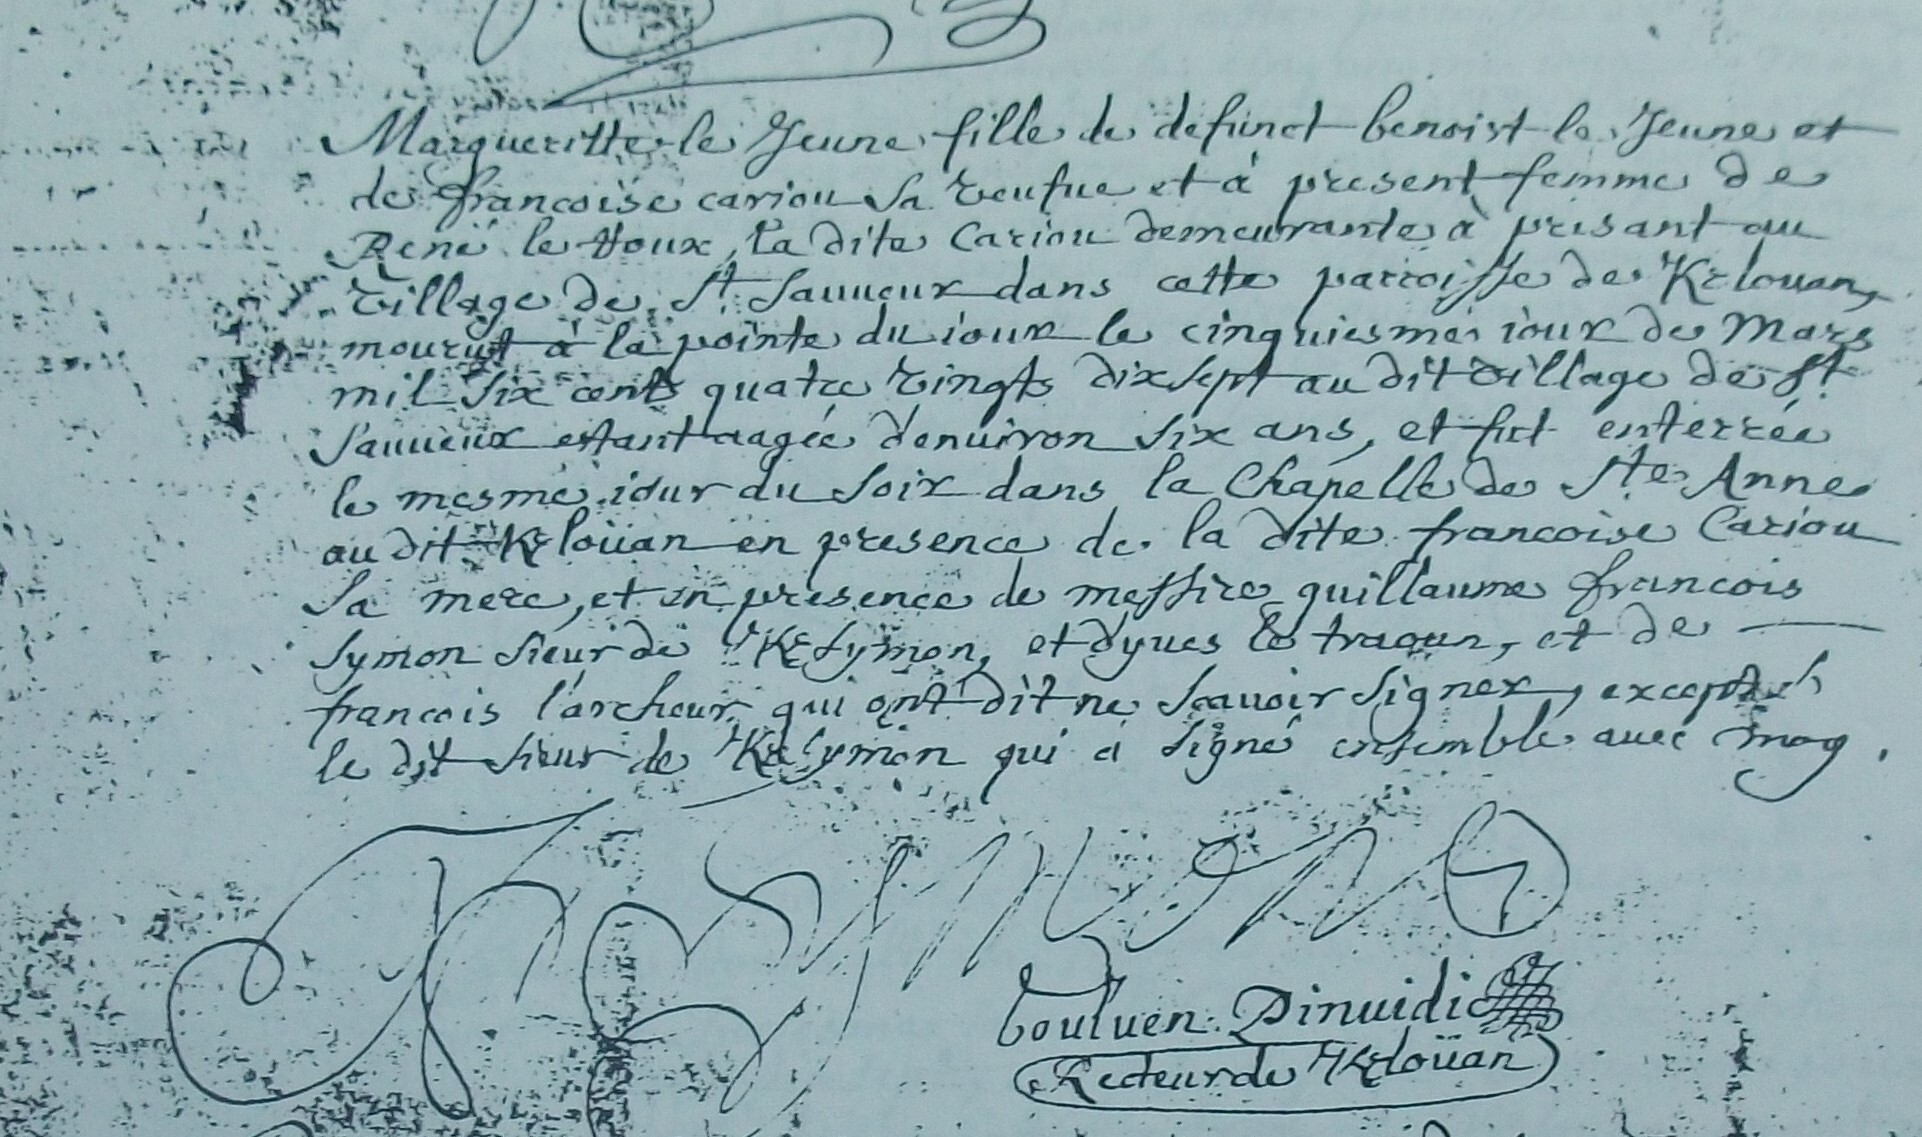 Margueritte le Jeune fille de defunct benoist le Jeune et
de francoise cariou sa veufue et à present femme de
René le Roux, la dite Cariou demeurante à présant au
village de St Sauueur dans cette parroisse de Krlouan,
mourut à la pointe du iour le cinquiesme iour de Mars
mil six cents quatre vingts dixsept au dit village de St
Sauueur estant aagée d'enuiron six ans, et fut enterrée
le mesme iour du soir dans la Chapelle de Ste Anne
au dit Krloüan en presence de la dite francoise Cariou
sa mere, et en presence de messire guillaume francois
symon sieur de Krsymon, et d'yues le traoun, et de
francois l'archeur qui ont dit ne scauoir signer, excepté
le dit sieur de Krsymon qui a signé ensemble auec moy.
Krsymon
Recteur de Krloüan